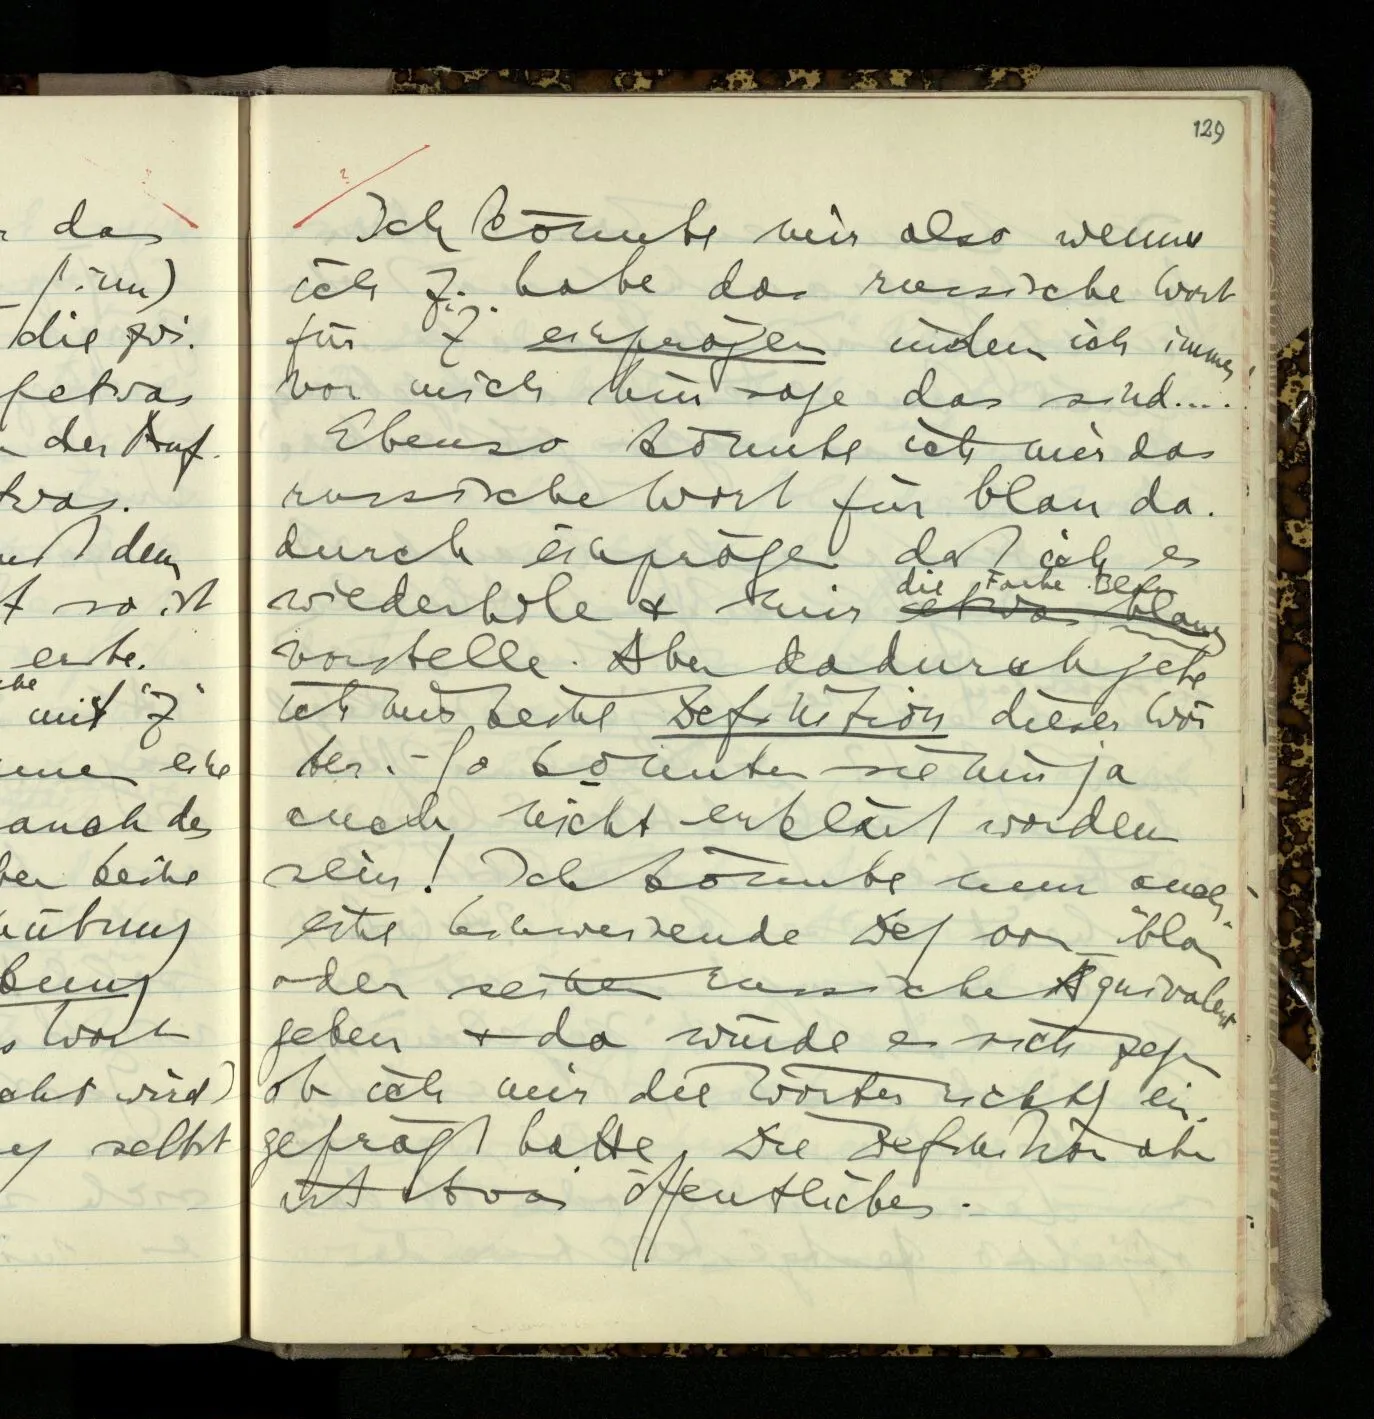 129
Ich könnte mir also wenn
ich Z. habe das russische Wort
für Z einprägen indem ich immer
vor mich hin sage das sind....
Ebenso könnte ich mir das
russische Wort für blau da-
durch einprägen daß ich es
die Farbe Blau
wiederhole & mir etwas blaues
vorstelle. Aber dadurch gebe
ich mir keine Definition dieser Wör
ter. – So könnten sie mir ja
auch nicht erklärt worden
sein! Ich könnte nun auch
eine hinweisende Def von "blau"
oder seinem russische Äquivalent
geben & da würde es sich zeigen
ob ich mir die Wörter richtig ein-
geprägt hatte. Die Definition aber
ist etwas öffentliches.
das
(inn)
die zwi-
etwas
der Auf-
dem
so ist
erste.
mit "Z"
eine
auch des
keine
übung
Wort
wird)
selbst